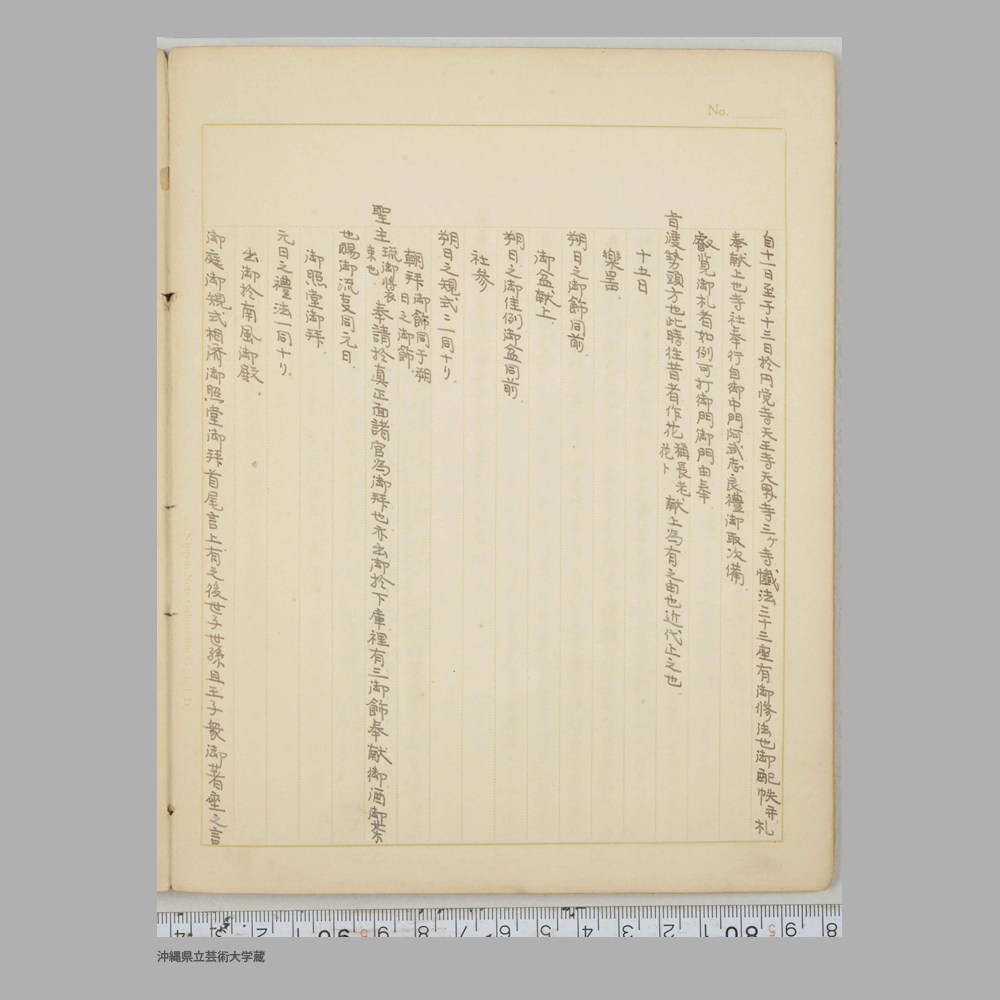 No.
自十一日至于十三日於円覚寺天王寺天界寺三ヶ寺懺法三十三座有御修法也御配帙并札
奉献上也寺社奉行自御中門阿武志良禮御取次備
叡覧御札者如例可打御門御門由奉
旨渡勢頭方也此時往昔者作花猶長老花ト献上為有之由也近代止之也
十五日
樂器
朔日之御飾同前
御盆献上
朔日之御佳例御盆同前
社参
朔日之規式ニ同十リ
朝拜御飾同于朔日之御飾
聖主琉御将衣束也奉請於真正面諸官為御拜也亦出御於下庫裡有三御飾奉献御酒御茶
也賜御流度同元日
御照堂御拜
元日之禮法一同十リ
出御於南風御殿
御庭御規式相済御照堂御拜首尾言上有之後世子世孫且王子衆御著座之言
沖縄県立芸術大学蔵